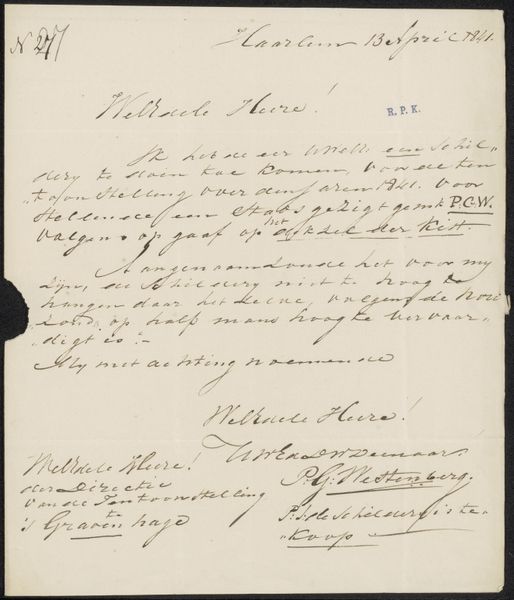 N 27
Haarlem 13 April 1841.
WelEdele Heere!
R.P.K.
Ik heb de eer UwEd. een schil-
dery te doen toe komen, voor de ten
toon stelling over den Jaren 1841. voor
stellende een Stads gezigt gemk P.C.W.
volgens op gaaf op het deksel der Kist.
Aangenaam zoude het voor my
zyn, de schildery niet te hoog te
hangen daar het zelve, volgens de hori
zond, op half mans hoogte vervaar-
digt is :-
My met achting noemende
WelEdele Heere!
UWEd DW Dienaar
P.G. Westenberg.
P.S. de schildery is te
Koop
WelEdele Heere!
der Directie
van de Tentoonstelling
te
's Gravenhage